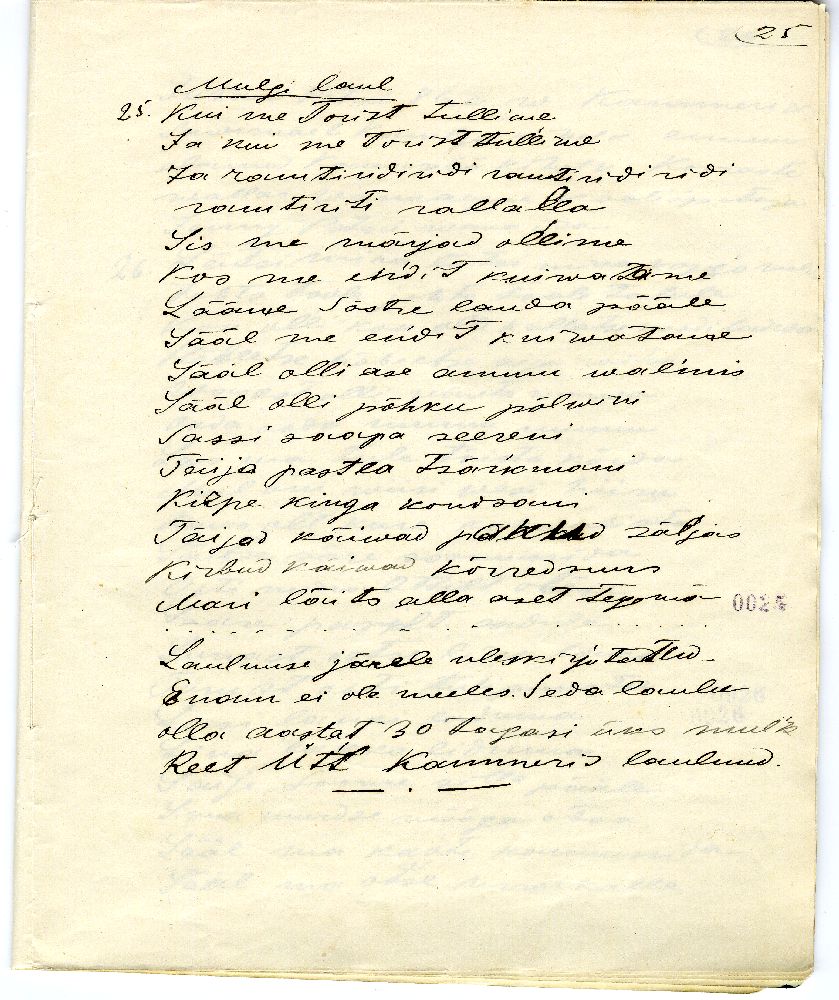 25
Mulgi laul
25. Kui me Torist tullime
Ja kui me Torist tullime
Ja ramtiridiridi ramtiridiridi
ramtiriti rallalla
Sis me märjad ollime
Kos me endit kuiwatame
Lääme Sõstre lauda pääle
Sääl me endit kuiwatame
Sääl olli ase ammu walmis
Sääl olli põhku põlwini
Sassi saapa seereni
Täija pastla tsärkmani
Kirpe kinga kondsani
Täijad käiwad säljas
Kirbud käiwad kõrred suus
Mari läits alla aset tegema
0025
Laulmise järele uleskirjutattu.
Enam ei ole meeles. Seda laulu
olla aastat 30 tagasi üks mulk
Reet Ütt Kammeris laulnud.